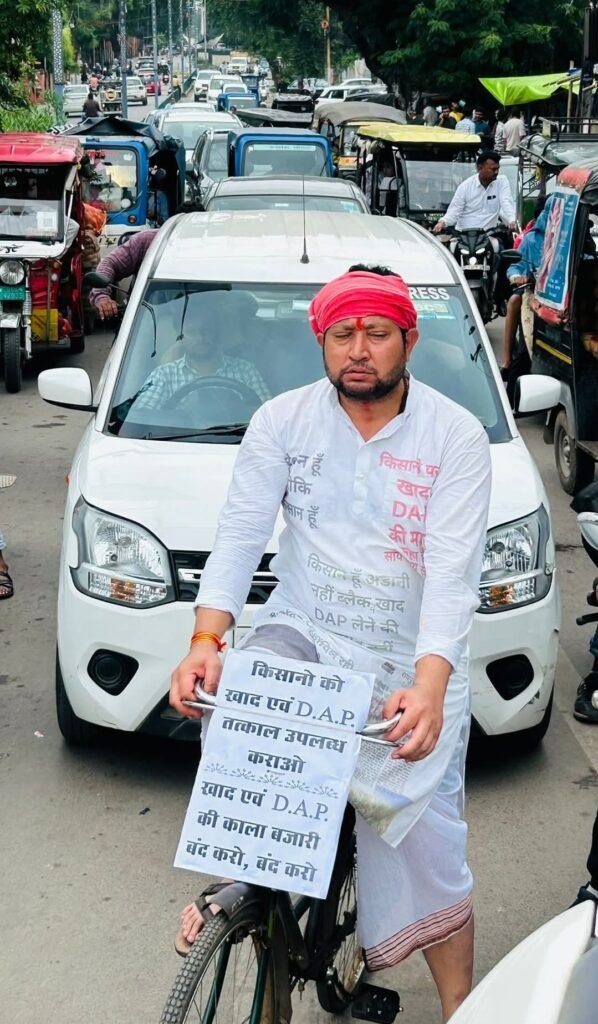 RESS
किसानो पर
खाद
DAP
की मा
किसान हूँ अडानी
नहीं ब्लैक खाद
DAP लेने की
किसानो को
खाद एवं D.A.P.
तत्काल उपलब्ध
कराओ
खाद एवं D.A.P.
की काला बजारी
बंद करो, बंद करो